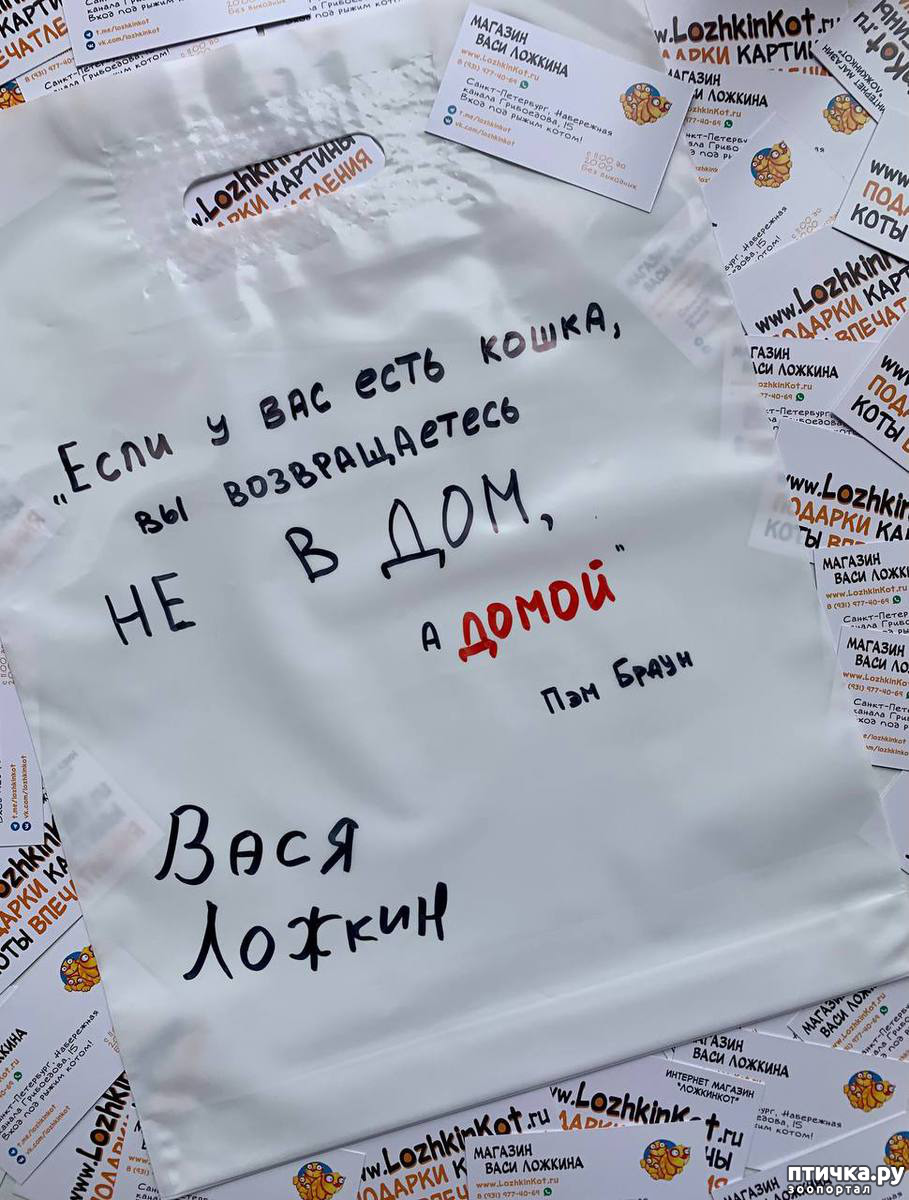 МАГАЗИН
ВАСИ ЛОЖКИНА
www.LozhkinKot.ru
8 (931) 977-40-69
Санкт-Петербург, Набережная
канала Грибоедова, 15
Вход под рыжим котом!
t.me/lozhkinkot
vk.com/lozhkinkot
с 11:00 до
20:00
без выходных
„Если у вас есть кошка,
вы возвращаетесь
не в дом,
а домой"
Пэм Браун
Вася
Ложкин
www.LozhkinKot.ru
ПОДАРКИ КАРТИНЫ
КОТЫ ВПЕЧАТЛЕНИЯ
ИНТЕРНЕТ МАГАЗИН
"ЛОЖКИНКОТ"
МАГАЗИН
ВАСИ ЛОЖКИНА
www.LozhkinKot.ru
8 (931) 977-40-69
птичка.ру
зоопортал